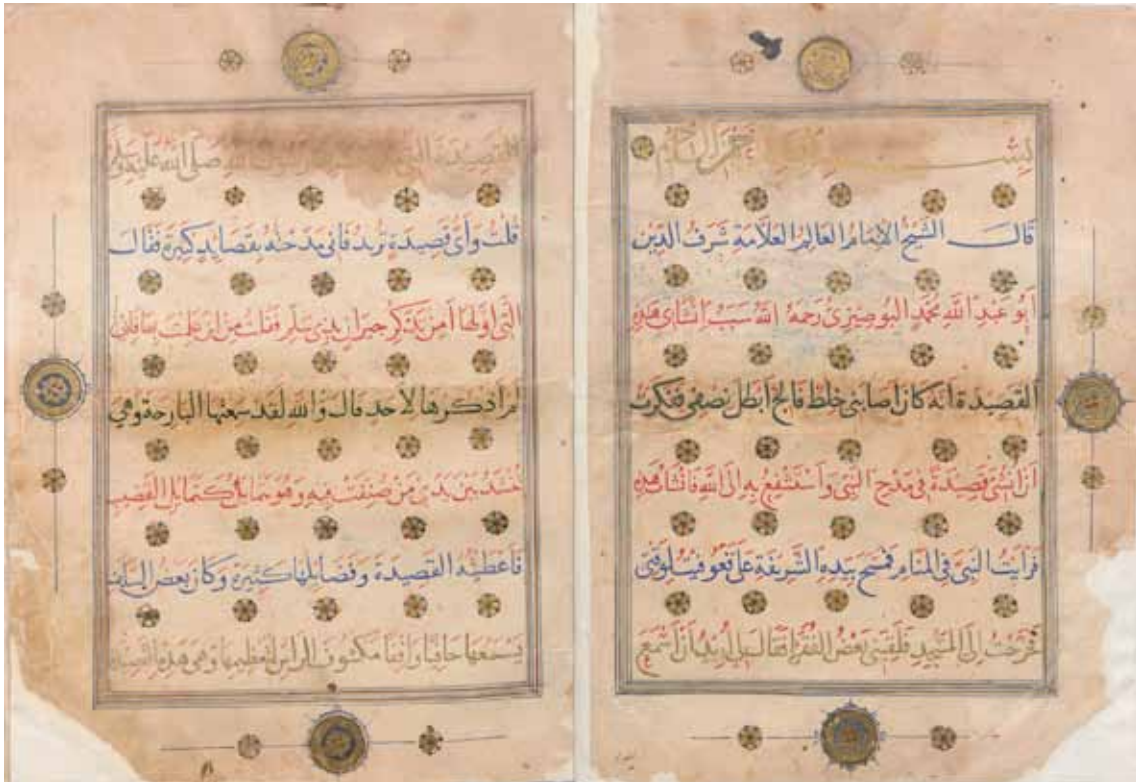 بسم الله الرحمن الرحيم
قال الشيخ الإمام العالم العلامة شرف الدين
أبو عبد الله محمد البوصيري رحمه الله سبب انشائ هذه
القصيدة انه كان أصابني خلط فالج أبطل نصفي ففكرت
أن انشئ قصيدة في مدح النبي وأستشفع به إلى الله فانشأت هذه
فرايت النبي في المنام فمسح بيده الشريفة علي فعوفيت لوقتي
خرجت إلى فلقيني بعض الفقرا فقال لي أريد أن أسمع
القصيدة التي صلى الله عليه وسلم
قلت وأي قصيدة تريد فاني مدحته بقصايد كثيرة فقال
التي اولها أمن تذكر جيران بذي سلم فقلت من اين علمت بها فاني
لم أذكرها لأحد قال والله لقد سمعتها البارحة وهي
تنشد بين يدي من صنفت فيه وهو يتمايل كتمايل القضيب
فأعطيته القصيدة وفضائلها كثيرة وكان بعض السلف
يسمعها حافيا واقفا مكشوف الراس لتعظيمها وهي هذه القصيدة